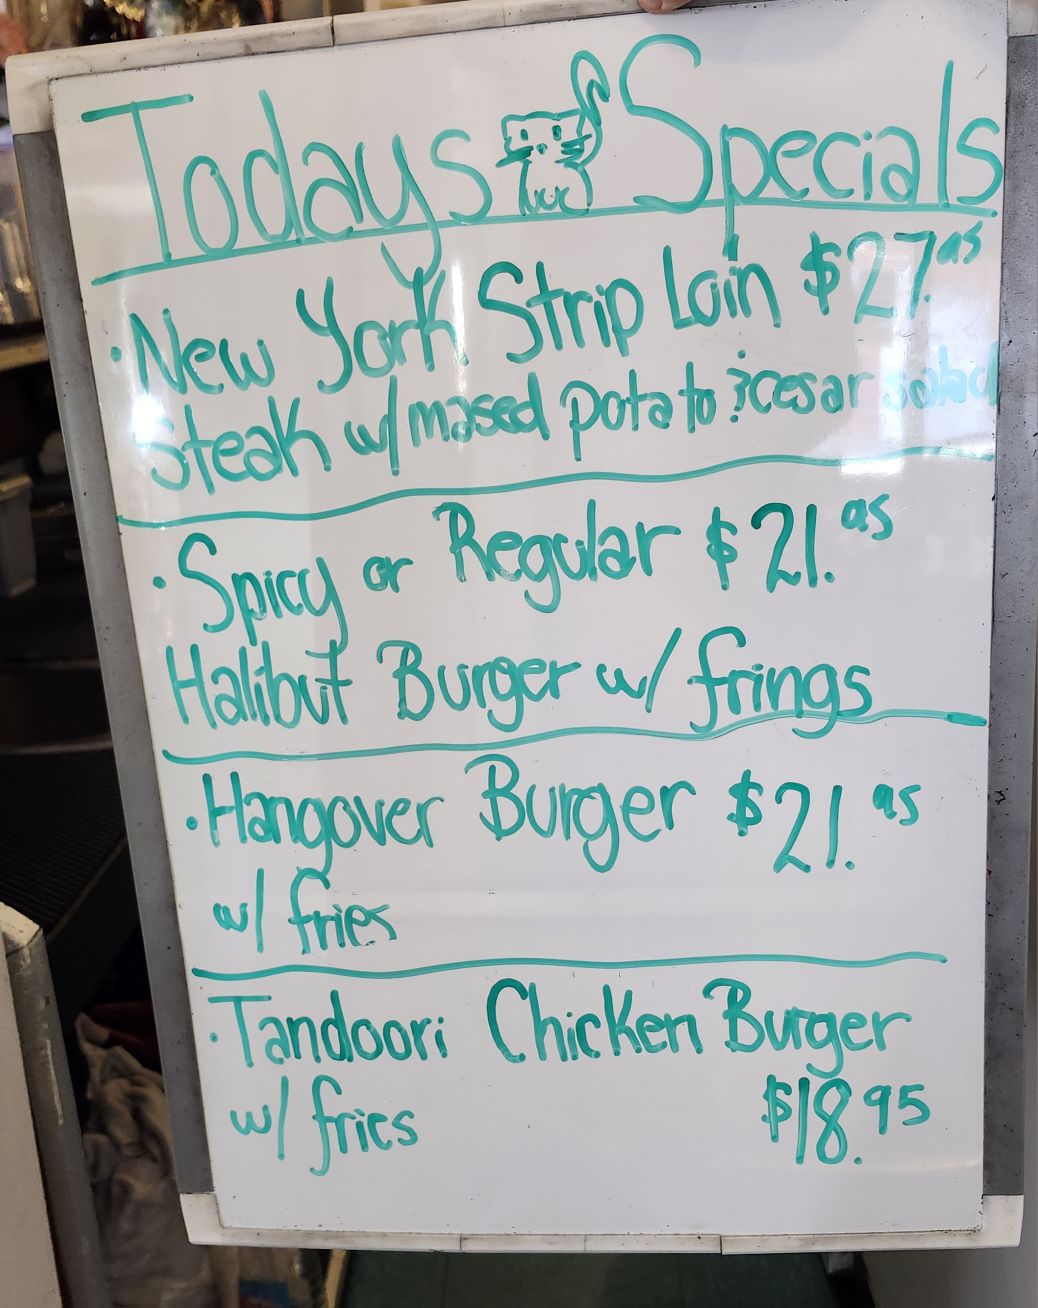 Todays Specials
·New York Strip Loin $27.95
Steak w/ mased potato & cesar salad
·Spicy or Regular $21.95
Halibut Burger w/ frings
·Hangover Burger $21.95
w/ fries
·Tandoori Chicken Burger
w/ fries $18.95